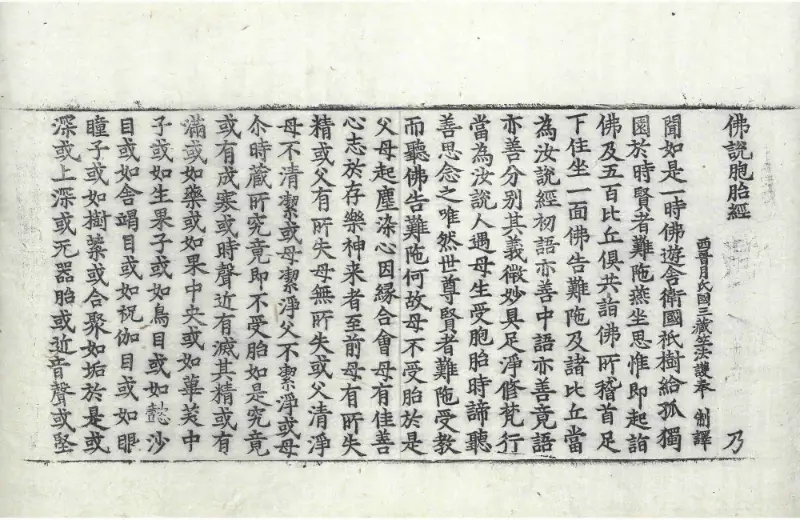 佛說胞胎經　乃
西晉月氏國三藏竺法護奉　制譯
聞如是一時佛遊舍衛國祇樹給孤獨
園於時賢者難陁燕坐思惟即起詣
佛及五百比丘俱共詣佛所稽首足
下住坐一面佛告難陁及諸比丘當
為汝說經初語亦善中語亦善竟語
亦善分別其義微妙具足淨修梵行
當為汝說人遇母生受胞胎時諦聽
善思念之唯然世尊賢者難陁受教
而聽佛告難陁何故母不受胎於是
父母起塵染心因緣合會母有佳善
心志於存樂神來者至前母有所失
精或父有所失母無所失或父清淨
母不清潔或母潔淨父不潔淨或母
尒時藏所究竟即不受胎如是究竟
或有成寒或時聲近有滅其精或有
滿或如藥或如果中央或如蓽茇中
子或如生果子或如鳥目或如懿沙
目或如舍竭目或如祝伽目或如眼
瞳子或如樹葉或合聚如垢於是或
深或上深或无器胎或近音聲或堅